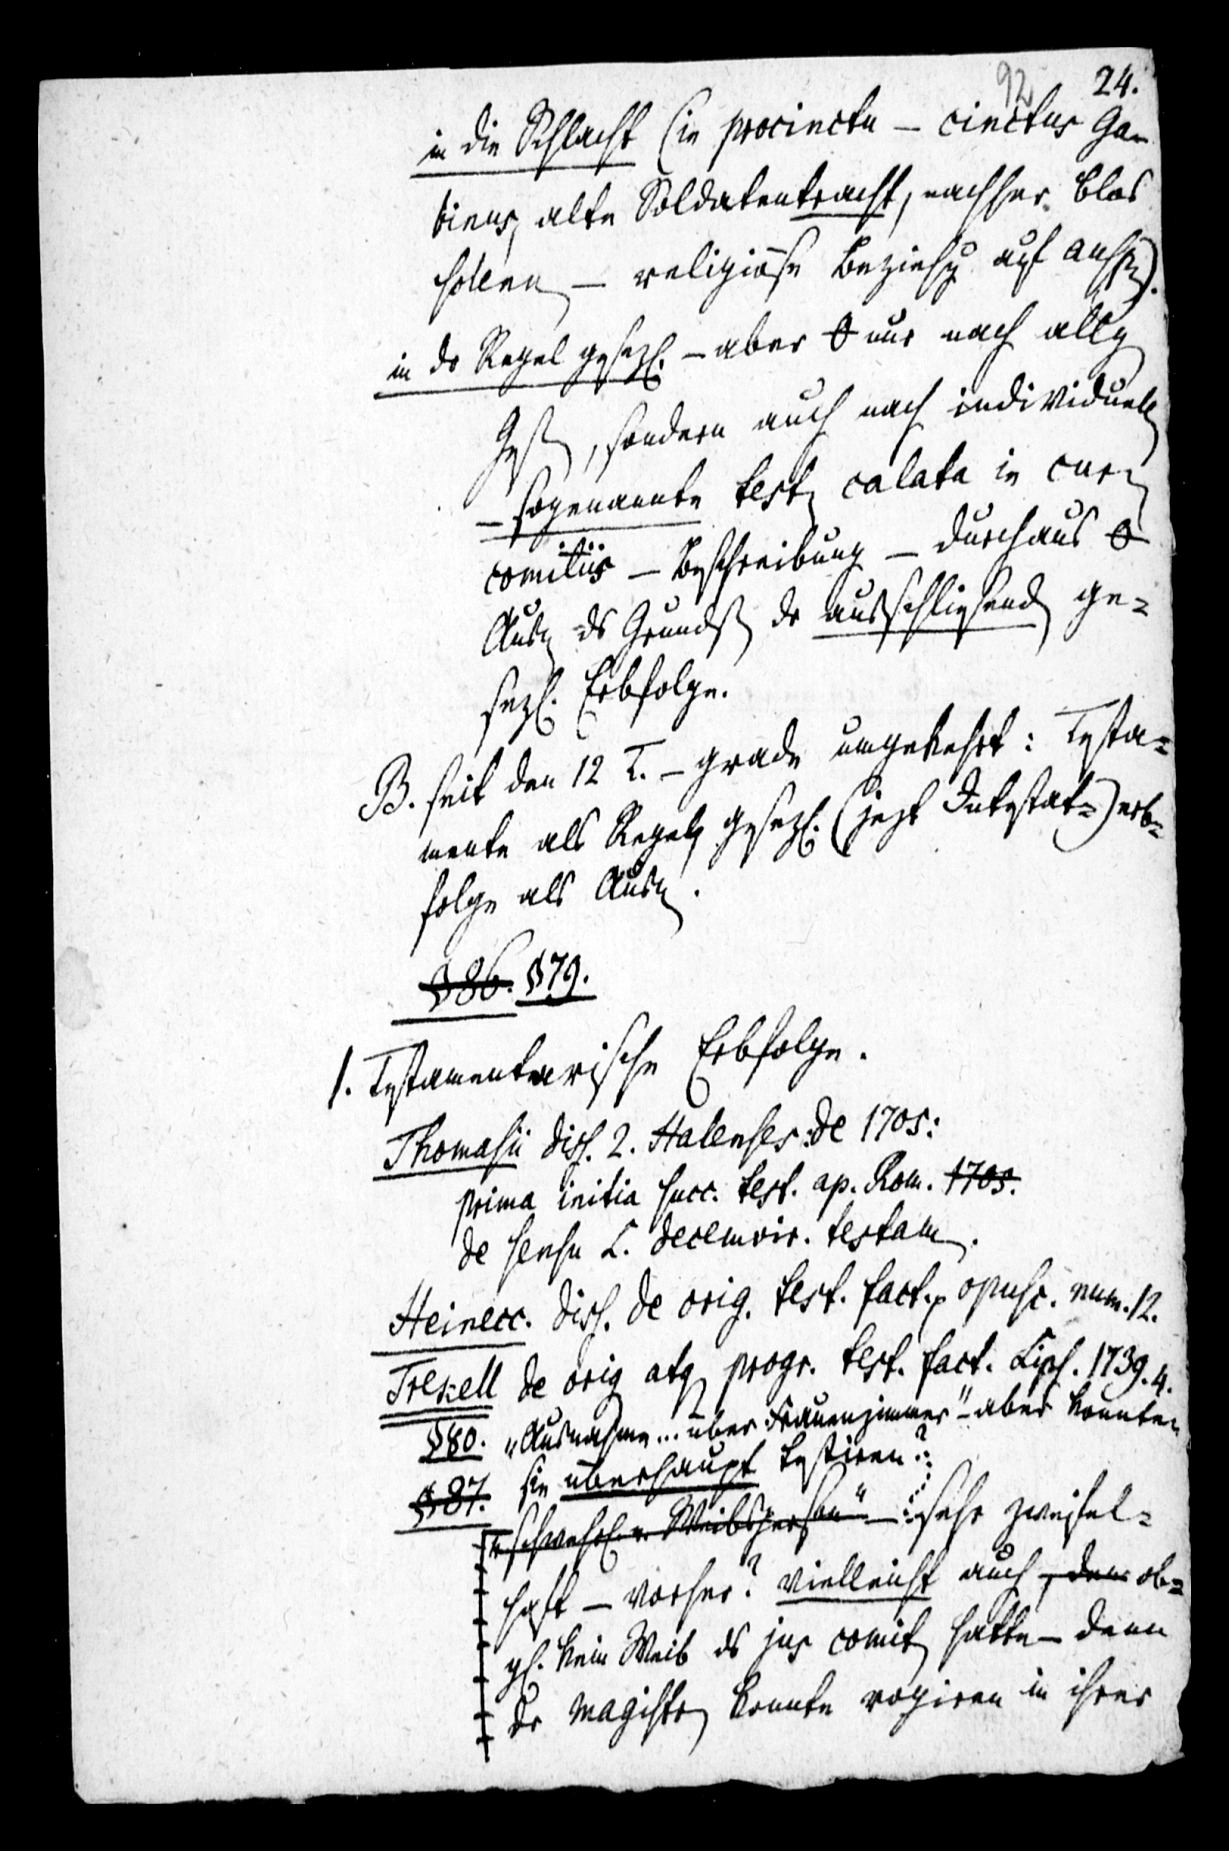 92 24.
in die Schlacht (in procinctu – cinctus Ga-
binus, alte Soldatentracht, nachher blos
sollenn – religiöse Beziehg auf ausp).
in dr Regel gesezl. – aber 0 nur nach allg
Ges, sondern auch nach individuell
– sogenannte test calata in cur
comitiis – Beschreibung – durchaus 0
Ausn ds Grunds dr ausschliesend ge=
sezl. Erbfolge.
B. seit den 12 T. – grade umgekehrt: Testa=
mente als Regel, gesezl. (jezt Intestat=) erb=
folge als Ausn.
§86. §79.
1. Testamentarische Erbfolge.
Thomasii diss. 2. Halenses de 1705:
prima initia succ. test. ap. Rom. 1705.
de sensu L. decemvir. testam.
Heinecc. diss. de orig. test. fact. opusc. num. 12.
Trekell de orig atq progr. test. fact. Lips. 1739. 4.
§80. "Ausnahme... über Frauenzimmer" – aber konnten
§87. sie überhaupt testiren?
"schwehrl. Weibsperson" – sehr zweifel=
haft – vorher? vielleicht auch, denn ob=
gl. kein Weib ds jus comit hatte – denn
dr magistr konnte rogiren in ihrer